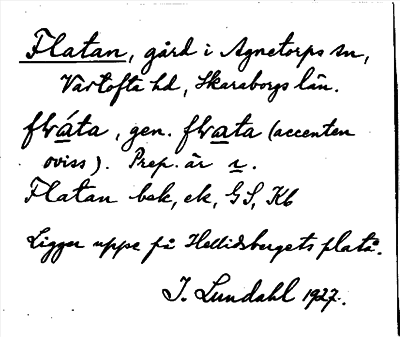 Flatan, gård i Agnetorps sn,
Vartofta hd, Skaraborgs län.
fláta, gen. flata (accenten
oviss). Prep. är
Flatan bek, ek, GS, Kb
Ligger uppe på Hellidsbergets platå.
J. Lundahl 1927.